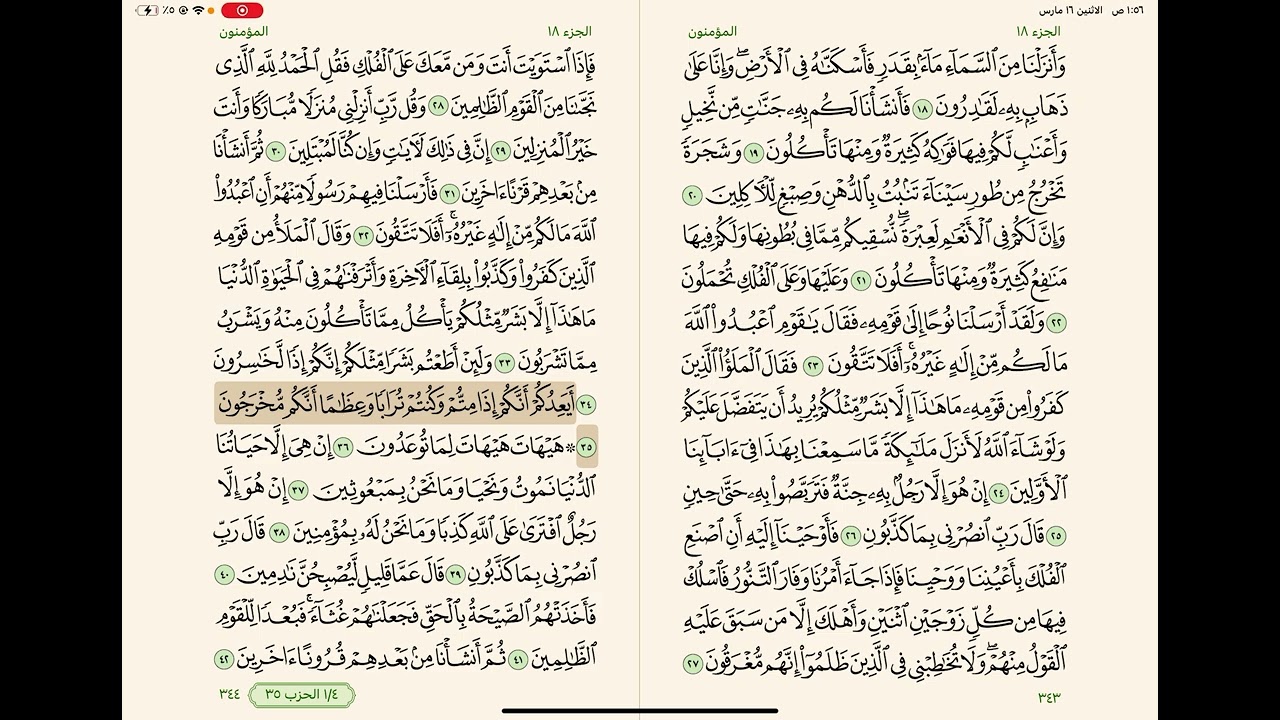 ١:٥٦ ص الاثنين ١٦ مارس
٪٥
الجزء ١٨
المؤمنون
وَأَنزَلْنَا مِنَ ٱلسَّمَآءِ مَآءًۢ بِقَدَرٍ فَأَسْكَنَّـٰهُ فِى ٱلْأَرْضِ ۖ وَإِنَّا عَلَىٰ
ذَهَابٍۭ بِهِۦ لَقَـٰدِرُونَ ١٨ فَأَنشَأْنَا لَكُم بِهِۦ جَنَّـٰتٍ مِّن نَّخِيلٍ
وَأَعْنَـٰبٍ لَّكُمْ فِيهَا فَوَٰكِهُ كَثِيرَةٌ وَمِنْهَا تَأْكُلُونَ ١٩ وَشَجَرَةً
تَخْرُجُ مِن طُورِ سَيْنَآءَ تَنۢبُتُ بِٱلدُّهْنِ وَصِبْغٍ لِّلْـَٔاكِلِينَ ٢٠
وَإِنَّ لَكُمْ فِى ٱلْأَنْعَـٰمِ لَعِبْرَةً ۖ نُّسْقِيكُم مِّمَّا فِى بُطُونِهَا وَلَكُمْ فِيهَا
مَنَـٰفِعُ كَثِيرَةٌ وَمِنْهَا تَأْكُلُونَ ٢١ وَعَلَيْهَا وَعَلَى ٱلْفُلْكِ تُحْمَلُونَ
٢٢ وَلَقَدْ أَرْسَلْنَا نُوحًا إِلَىٰ قَوْمِهِۦ فَقَالَ يَـٰقَوْمِ ٱعْبُدُوا۟ ٱللَّهَ
مَا لَكُم مِّنْ إِلَـٰهٍ غَيْرُهُۥٓ ۖ أَفَلَا تَتَّقُونَ ٢٣ فَقَالَ ٱلْمَلَؤُا۟ ٱلَّذِينَ
كَفَرُوا۟ مِن قَوْمِهِۦ مَا هَـٰذَآ إِلَّا بَشَرٌ مِّثْلُكُمْ يُرِيدُ أَن يَتَفَضَّلَ عَلَيْكُمْ
وَلَوْ شَآءَ ٱللَّهُ لَأَنزَلَ مَلَـٰٓئِكَةً مَّا سَمِعْنَا بِهَـٰذَا فِىٓ ءَابَآئِنَا
ٱلْأَوَّلِينَ ٢٤ إِنْ هُوَ إِلَّا رَجُلٌۢ بِهِۦ جِنَّةٌ فَتَرَبَّصُوا۟ بِهِۦ حَتَّىٰ حِينٍ
٢٥ قَالَ رَبِّ ٱنصُرْنِى بِمَا كَذَّبُونِ ٢٦ فَأَوْحَيْنَآ إِلَيْهِ أَنِ ٱصْنَعِ
ٱلْفُلْكَ بِأَعْيُنِنَا وَوَحْيِنَا فَإِذَا جَآءَ أَمْرُنَا وَفَارَ ٱلتَّنُّورُ فَٱسْلُكْ
فِيهَا مِن كُلٍّ زَوْجَيْنِ ٱثْنَيْنِ وَأَهْلَكَ إِلَّا مَن سَبَقَ عَلَيْهِ
ٱلْقَوْلُ مِنْهُمْ ۖ وَلَا تُخَـٰطِبْنِى فِى ٱلَّذِينَ ظَلَمُوٓا۟ إِنَّهُم مُّغْرَقُونَ ٢٧
٣٤٣
الجزء ١٨
المؤمنون
فَإِذَا ٱسْتَوَيْتَ أَنتَ وَمَن مَّعَكَ عَلَى ٱلْفُلْكِ فَقُلِ ٱلْحَمْدُ لِلَّهِ ٱلَّذِى
نَجَّىٰنَا مِنَ ٱلْقَوْمِ ٱلظَّـٰلِمِينَ ٢٨ وَقُل رَّبِّ أَنزِلْنِى مُنزَلًا مُّبَارَكًا وَأَنتَ
خَيْرُ ٱلْمُنزِلِينَ ٢٩ إِنَّ فِى ذَٰلِكَ لَـَٔايَـٰتٍ وَإِن كُنَّا لَمُبْتَلِينَ ٣٠ ثُمَّ أَنشَأْنَا
مِنۢ بَعْدِهِمْ قَرْنًا ءَاخَرِينَ ٣١ فَأَرْسَلْنَا فِيهِمْ رَسُولًا مِّنْهُمْ أَنِ ٱعْبُدُوا۟
ٱللَّهَ مَا لَكُم مِّنْ إِلَـٰهٍ غَيْرُهُۥٓ ۚ أَفَلَا تَتَّقُونَ ٣٢ وَقَالَ ٱلْمَلَأُ مِن قَوْمِهِ
ٱلَّذِينَ كَفَرُوا۟ وَكَذَّبُوا۟ بِلِقَآءِ ٱلْـَٔاخِرَةِ وَأَتْرَفْنَـٰهُمْ فِى ٱلْحَيَوٰةِ ٱلدُّنْيَا
مَا هَـٰذَآ إِلَّا بَشَرٌ مِّثْلُكُمْ يَأْكُلُ مِمَّا تَأْكُلُونَ مِنْهُ وَيَشْرَبُ
مِمَّا تَشْرَبُونَ ٣٣ وَلَئِنْ أَطَعْتُم بَشَرًا مِّثْلَكُمْ إِنَّكُمْ إِذًا لَّخَـٰسِرُونَ
٣٤ أَيَعِدُكُمْ أَنَّكُمْ إِذَا مِتُّمْ وَكُنتُمْ تُرَابًا وَعِظَـٰمًا أَنَّكُم مُّخْرَجُونَ
٣٥ * هَيْهَاتَ هَيْهَاتَ لِمَا تُوعَدُونَ ٣٦ إِنْ هِىَ إِلَّا حَيَاتُنَا
ٱلدُّنْيَا نَمُوتُ وَنَحْيَا وَمَا نَحْنُ بِمَبْعُوثِينَ ٣٧ إِنْ هُوَ إِلَّا
رَجُلٌ ٱفْتَرَىٰ عَلَى ٱللَّهِ كَذِبًا وَمَا نَحْنُ لَهُۥ بِمُؤْمِنِينَ ٣٨ قَالَ رَبِّ
ٱنصُرْنِى بِمَا كَذَّبُونِ ٣٩ قَالَ عَمَّا قَلِيلٍ لَّيُصْبِحُنَّ نَـٰدِمِينَ ٤٠
فَأَخَذَتْهُمُ ٱلصَّيْحَةُ بِٱلْحَقِّ فَجَعَلْنَـٰهُمْ غُثَآءً ۚ فَبُعْدًا لِّلْقَوْمِ
ٱلظَّـٰلِمِينَ ٤١ ثُمَّ أَنشَأْنَا مِنۢ بَعْدِهِمْ قُرُونًا ءَاخَرِينَ ٤٢
١/٤ الحزب ٣٥
٣٤٤